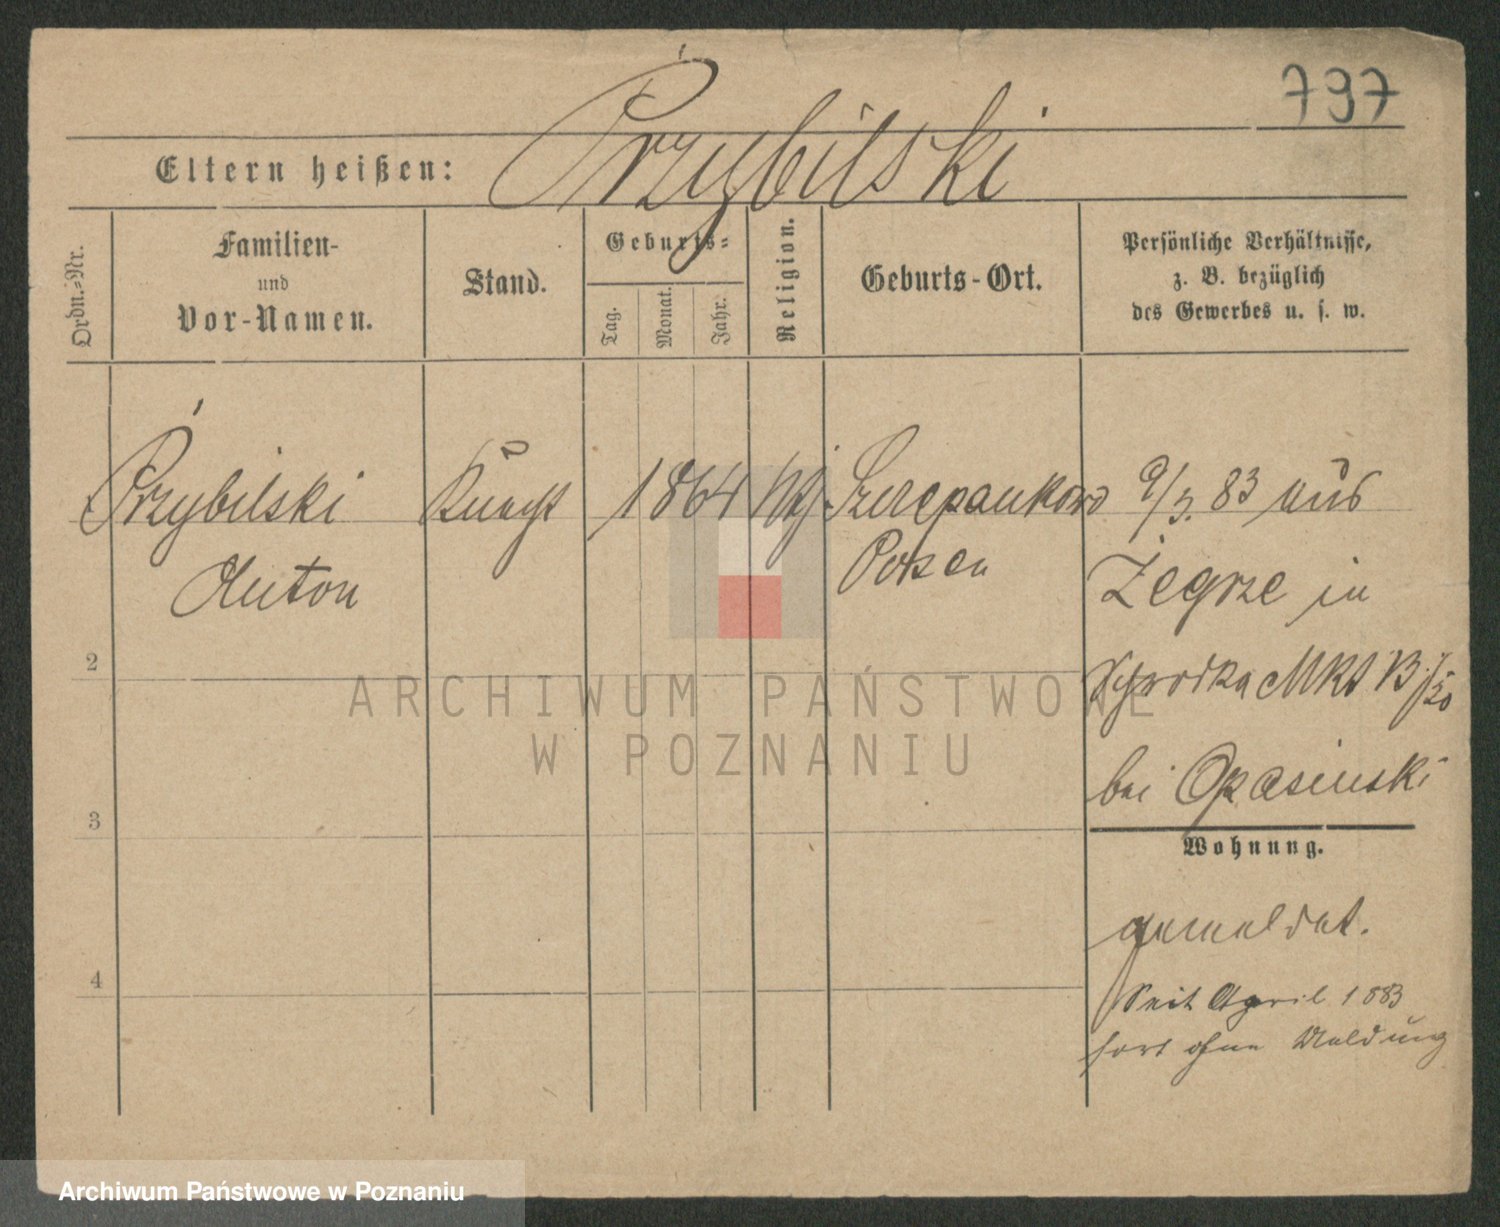 797
Przybilski
Eltern heißen:
Ordn.-Nr.
Familien-
und
Vor-Namen.
Stand.
Geburts-
Tag.
Monat.
Jahr.
Religion.
Geburts-Ort.
Persönliche Verhältnisse,
z. B. bezüglich
des Gewerbes u. s. w.
Przybilski Knecht 1864 Szczepankowo 9/3. 83 aus
Anton Posen Żegrze in
2
Schrodka Mkt
bei Opasinski
3
Wohnung.
gemeldet.
4
Seit April 1883
fort ohne Meldung
ARCHIWUM PAŃSTWOWE
W POZNANIU
Archiwum Państwowe w Poznaniu